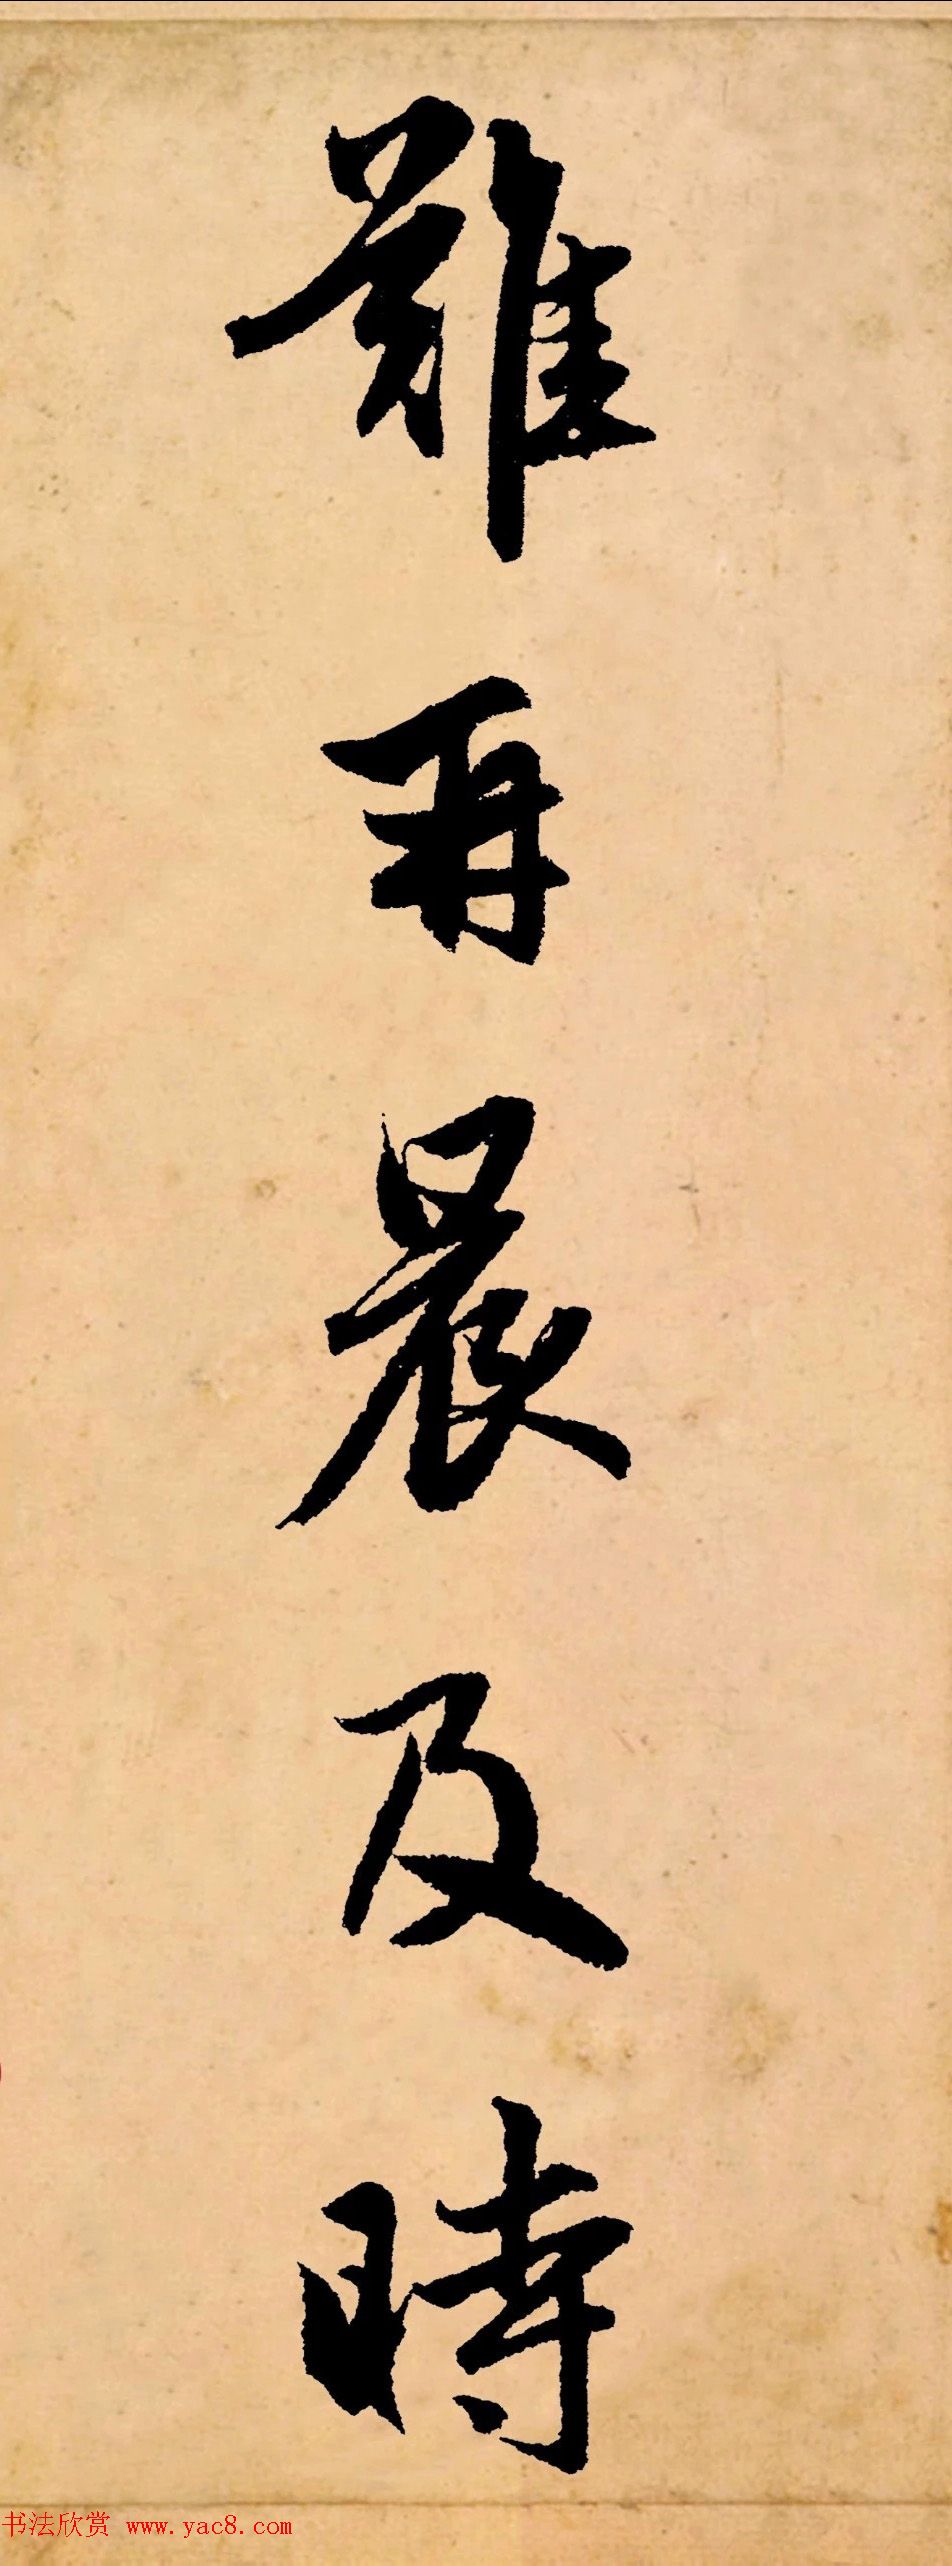 難再晨及時
书法欣赏 www.yac8.com